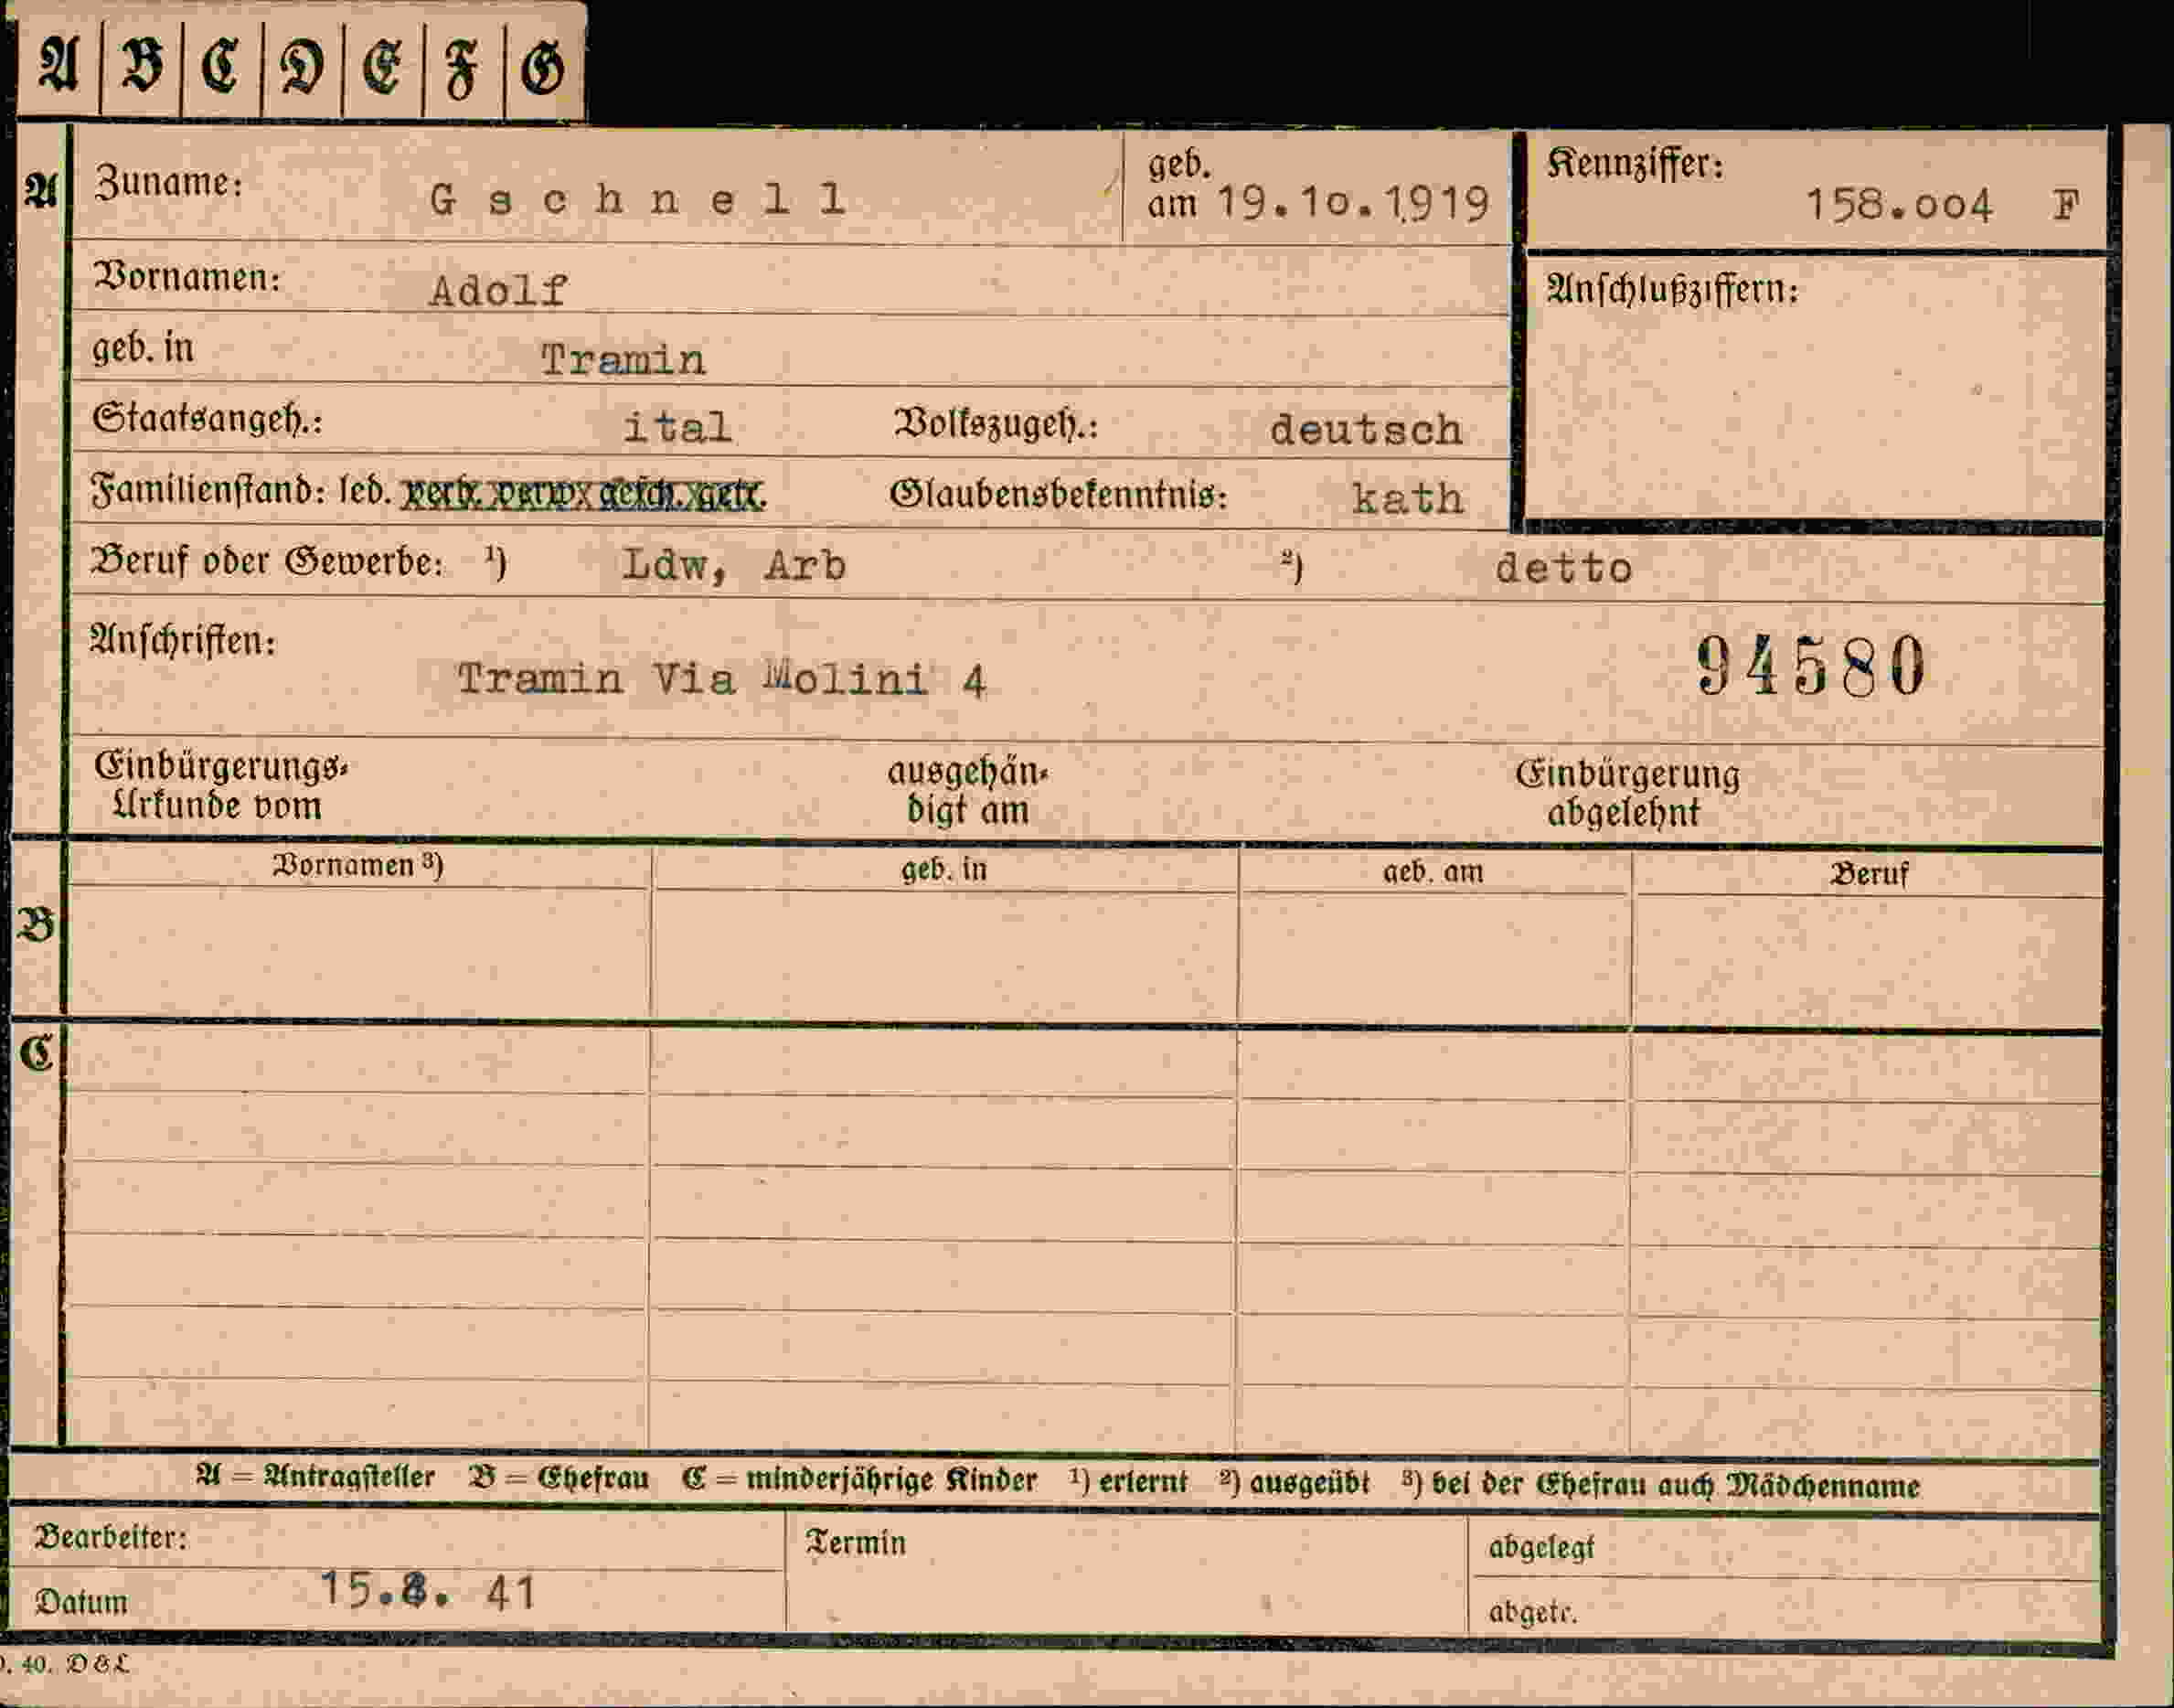 A B C D E F G
A Zuname: Gschnell geb. am 19.1o.1919 Kennziffer: 158.oo4 F
Vornamen: Adolf Anschlußziffern:
geb. in Tramin
Staatsangeh.: ital Volkszugeh.: deutsch
Familienstand: led. verh. verw. gesch. getr. Glaubensbekenntnis: kath
Beruf oder Gewerbe: ¹) Ldw, Arb ²) detto
Anschriften: Tramin Via Molini 4 94580
Einbürgerungs- ausgehän- Einbürgerung
Urkunde vom digt am abgelehnt
Vornamen ³) geb. in geb. am Beruf
B
C
A = Antragsteller B = Ehefrau C = minderjährige Kinder ¹) erlernt ²) ausgeübt ³) bei der Ehefrau auch Mädchenname
Bearbeiter: Termin abgelegt
Datum 15.8. 41 abgetr.
. 40. D & L